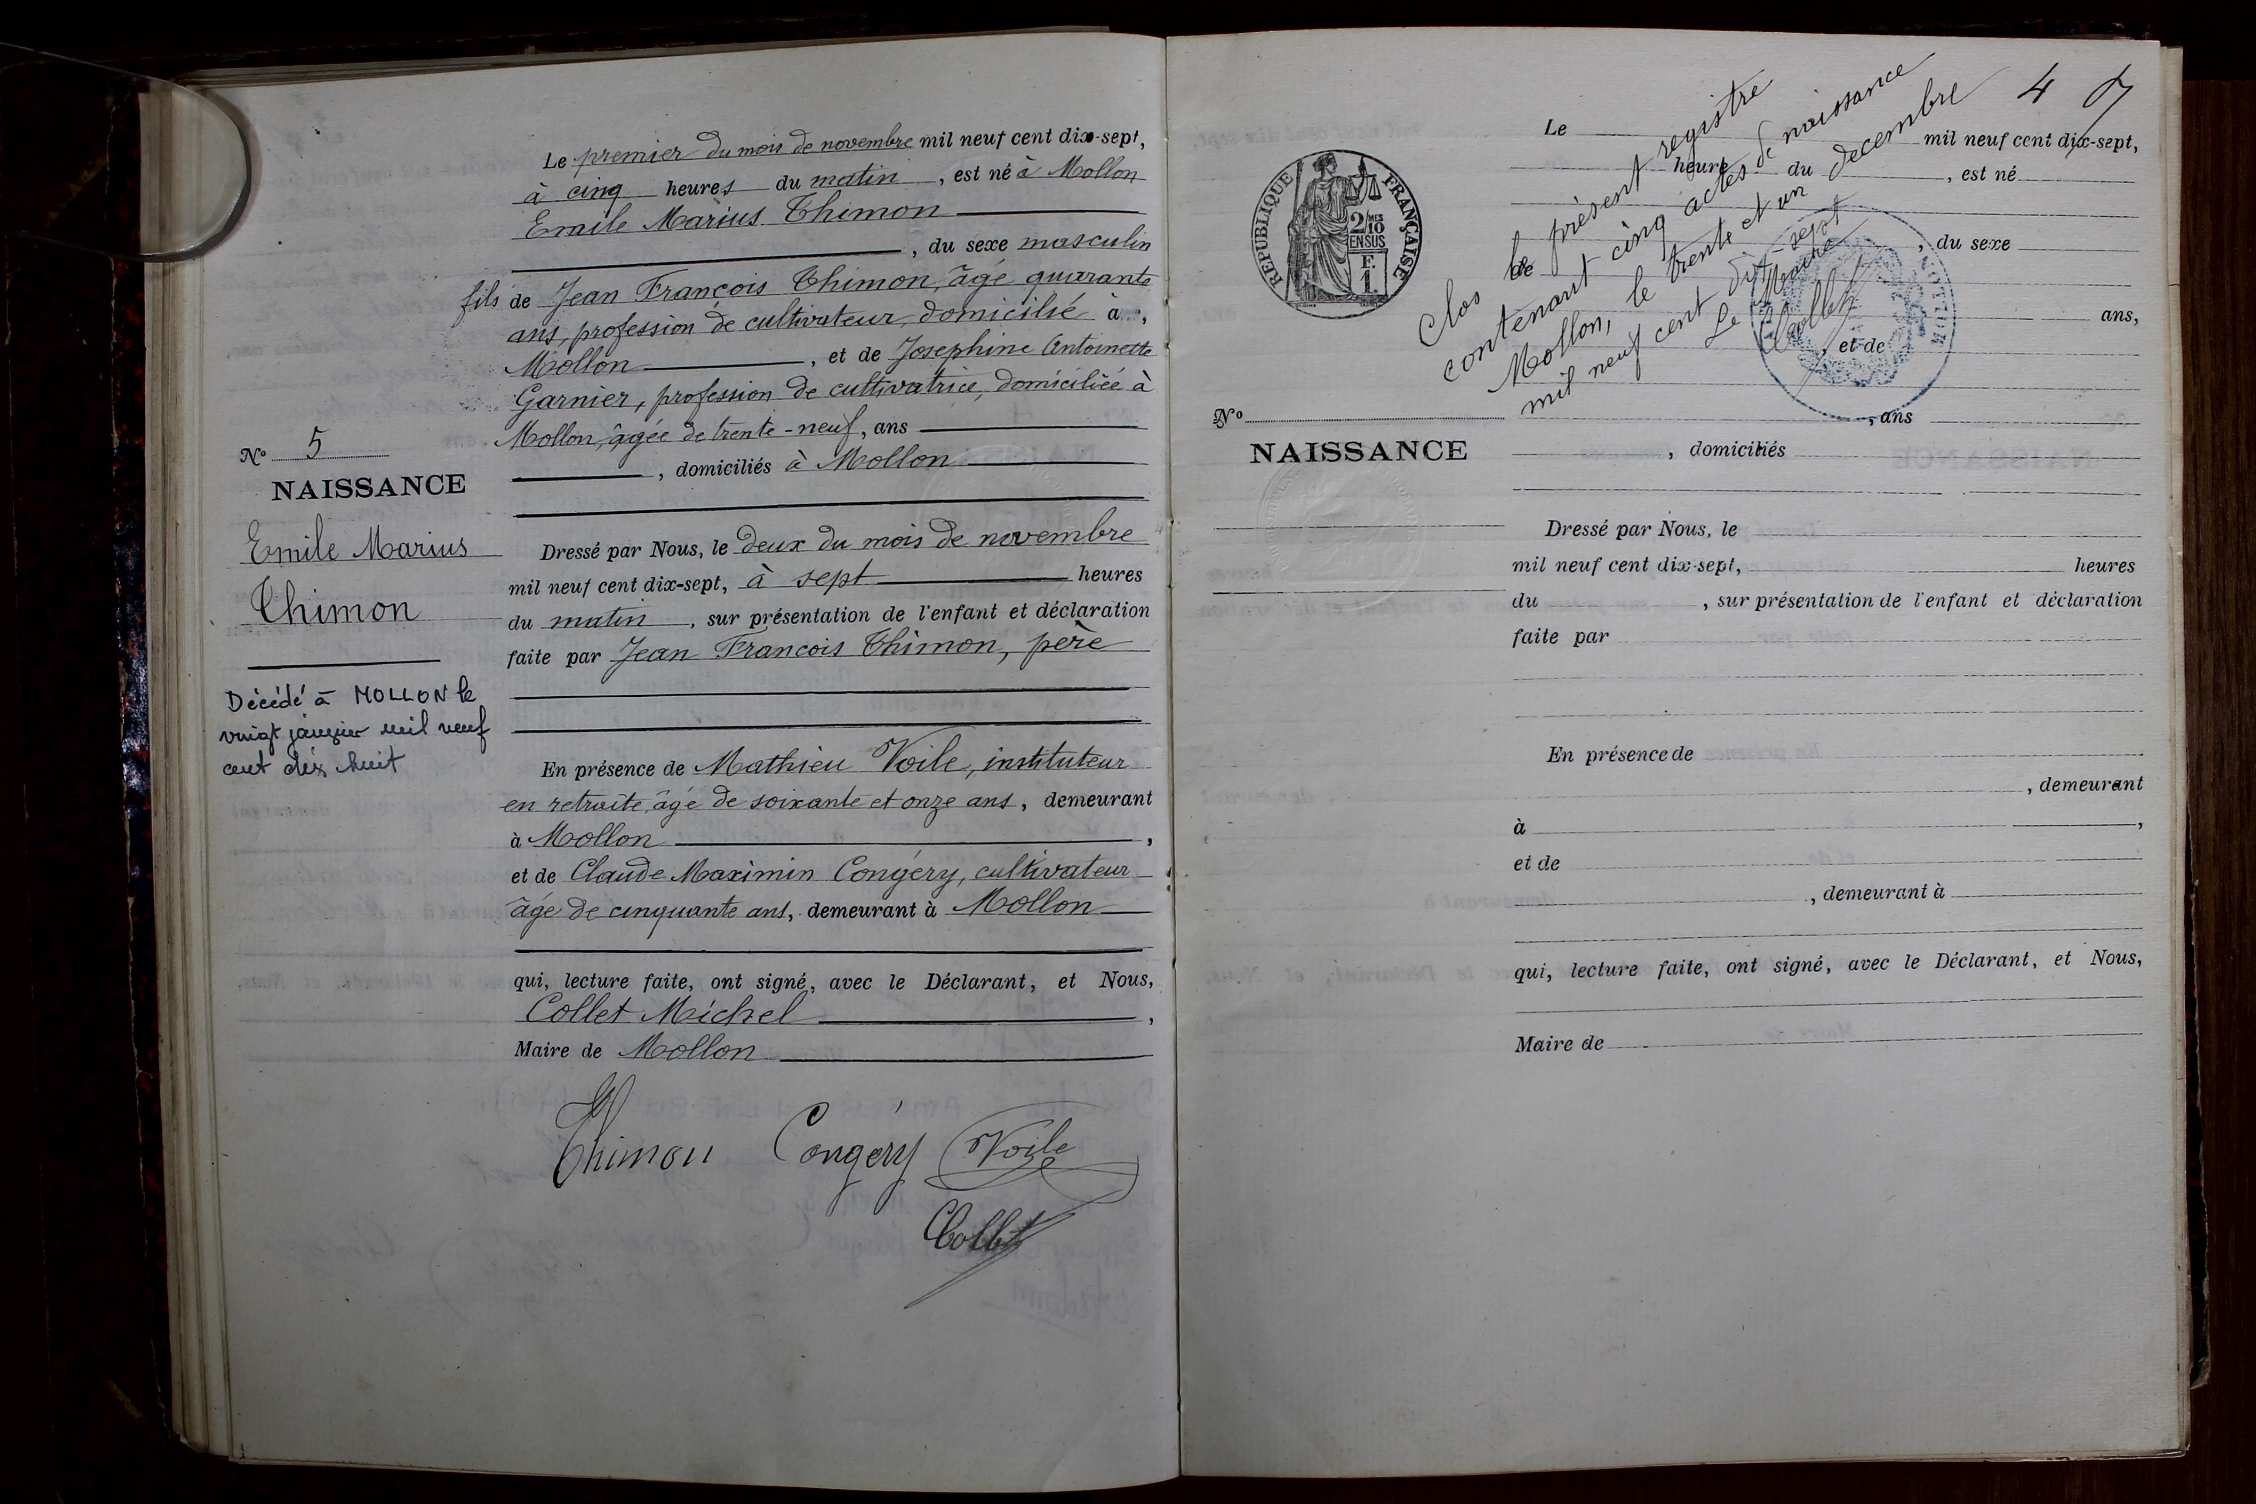 Le premier du mois de novembre mil neuf cent dix-sept,
à cinq heures du matin, est né à Mollon
Emile Marius Thimon
, du sexe masculin
fils de Jean François Thimon, âgé quarante
ans, profession de cultivateur, domicilié à,
Mollon, et de Josephine Antoinette
Garnier, profession de cultivatrice, domiciliée à
Mollon, âgée de trente-neuf, ans
, domiciliés à Mollon
No 5
NAISSANCE
Emile Marius
Thimon
Décédé à MOLLON le
vingt janvier mil neuf
cent dix huit
Dressé par Nous, le deux du mois de novembre
mil neuf cent dix-sept, à sept heures
du matin, sur présentation de l'enfant et déclaration
faite par Jean Francois Thimon, père
En présence de Mathieu Voile, instituteur
en retraite, âgé de soixante et onze ans, demeurant
à Mollon,
et de Claude Maximin Congéry, cultivateur
âgé de cinquante ans, demeurant à Mollon
qui, lecture faite, ont signé, avec le Déclarant, et Nous,
Collet Michel,
Maire de Mollon
Thimon Congéry Voile
Collet
4
REPUBLIQUE FRANÇAISE
2/10 MES
EN SUS
F.
1.
Clos le présent registre
contenant cinq actes de naissance
Mollon, le trente et un decembre
mil neuf cent dix sept
Le Maire
Collet
Le mil neuf cent dix-sept,
heure du, est né
, du sexe
de
ans,
, et de
, ans
No
NAISSANCE
, domiciliés
Dressé par Nous, le
mil neuf cent dix-sept, heures
du, sur présentation de l'enfant et déclaration
faite par
En présence de
, demeurant
à,
et de
, demeurant à
qui, lecture faite, ont signé, avec le Déclarant, et Nous,
Maire de